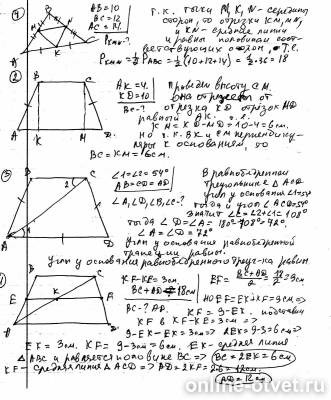 AB=10
BC=12
AC=14
P_KMN-?
Т.к. точки M, K, N - середины
сторон, то отрезки KM, MN,
и KN - средние линии
и равны половинам соот-
ветствующих сторон, т.е.
P_KMN = 1/2 P_ABC = 1/2(10+12+14) = 1/2·36 = 18
②
AK=4.
KD=10
BC-?
Проведем высоту CM.
она отрезает от
отрезка KD отрезок MD
равный AK, т.е.
KM=KD-MD=10-4=6см.
Но т.к. BK и CM перпендику-
ляры к основаниям, то
BC=KM=6см.
③
∠1=∠2=54°
AB=CD=AD
∠A, ∠D, ∠B, ∠C-?
В равнобедренном
треугольнике ΔACD
угол у основания
тогда и угол
значит
тогда ∠D=∠A=180°-108°=72°
∠A=∠D=72°
Угол у основания равнобедренной
трапеции равны.
Угол у основания равнобедренного треуг-ка равны
KF-KE=3см.
BC+AD=18см
BC-? AD.
EF=(BC+AD)/2=18/2=9см
Но EF=EK+KF=9см=>
KF=9-EK. подставим
KF в KF-KE=3см=>
9-EK-EK=3см=> 2EK=9-3=6см=>
EK=3см. KF=9-3см=6см. EK-средняя линия
ΔABC и равняется половине BC=> BC=2EK=6см
KF-средняя линия ΔACD=> AD=2KF=2·6=12см.
AD=12см
online-otvet.ru